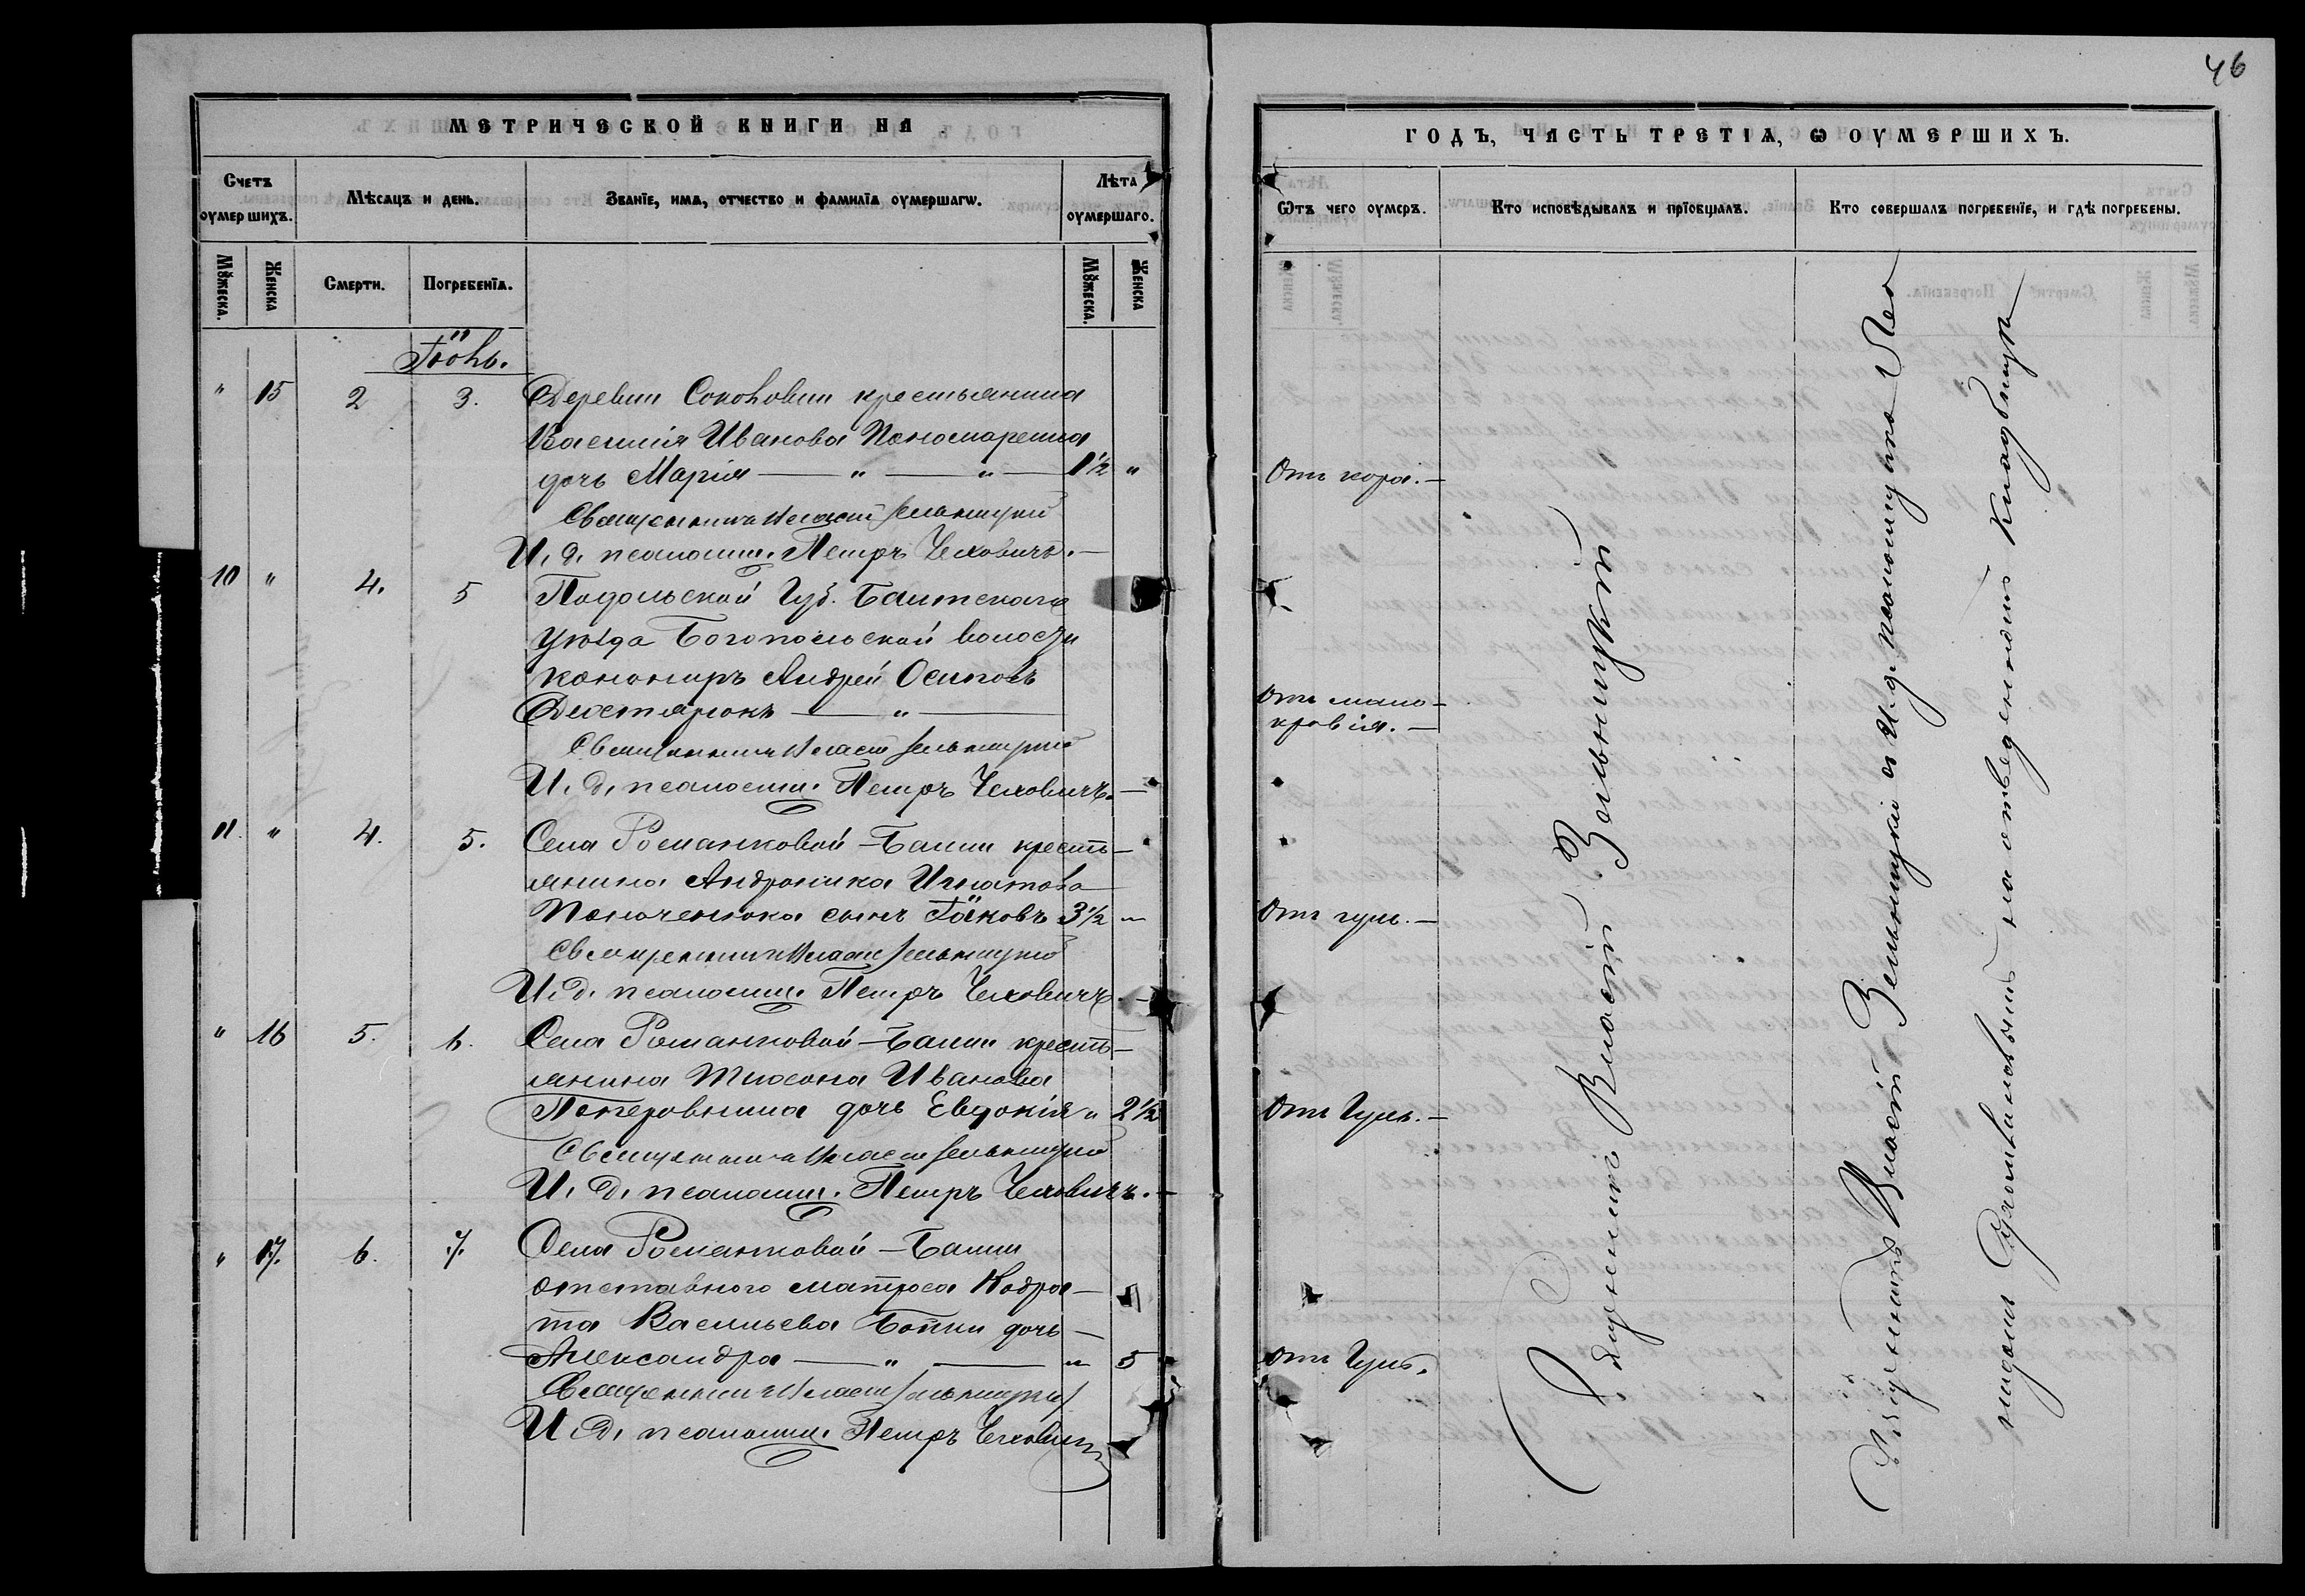 46
МЕТРИЧЕСКОЙ КНИГИ НА
Счетъ оумершихъ.
Мѣсяцъ и день.
Званїе, имя, отчество и фамилїя оумершагѡ.
Лѣта оумершаго.
Мꙋжеска.
Женска
Смерти.
Погребенїя.
Мꙋжеска.
Женска
Іюнь.
" 15 2 3. Деревни Соколовки крестьянина
Василія Иванова Пономаренка
дочь Марія — " — " — 1½ "
Священникъ Власій Зельницкій
И. д. псаломщ. Петръ Чехович.—
10 " 4. 5 Подольской Губ. Балтскаго
уѣзда Богопольской волости
канониръ Андрей Осиповъ
— " —
Священникъ Власій Зельницкій
И. д. псаломщ. Петръ Чеховичъ.—
11. " 4. 5. Села Романковой-Балки кресть-
янина Андроника Игнатова
сынъ Іаковъ 3½ "
Священникъ Власій Зельницкій
И. д. псаломщ. Петръ Чеховичъ.—
" 16 5. 6. Села Романковой-Балки кресть-
янина Тимона Иванова
дочь Евдокія " 2½
Священникъ Власій Зельницкій
И. д. псаломщ. Петръ Чеховичъ.—
" 17. 6. 7. Села Романковой-Балки
отставного матроса Кодра-
та Васильева Бойки дочь —
Александра — " — " 5
Священникъ Власій Зельницкій
И. д. псаломщ. Петръ Чеховичъ
ГОДЪ, ЧАСТЬ ТРЕТІЯ, Ѡ ОУМЕРШИХЪ.
Ѿтъ чего оумеръ.
Кто исповѣдывалъ и прїобщалъ.
Кто совершалъ погребенїе, и гдѣ погребены.
Отъ кори.—
Отъ мало-
кровія.—
Отъ гуль.—
Отъ Гуль.—
Отъ Гуль.
Священникъ Власій Зельницкій
Священникъ Власій Зельницкій съ И. д. псаломщика Чехо
на отведенномъ кладбищѣ